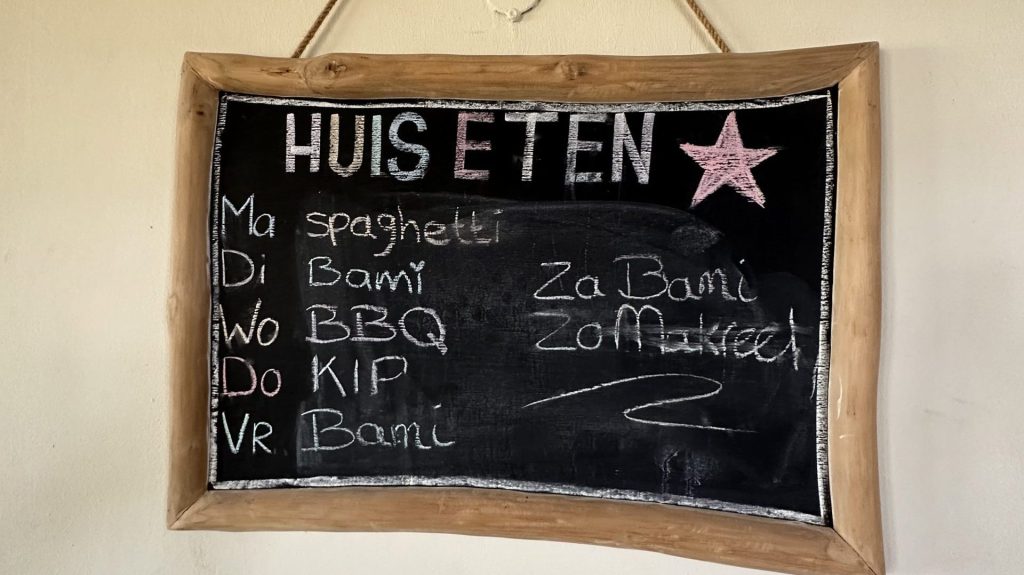 HUIS ETEN
Ma spaghetti
Di Bami
Wo BBQ
Do KIP
Vr Bami
Za Bami
Zo Makreel